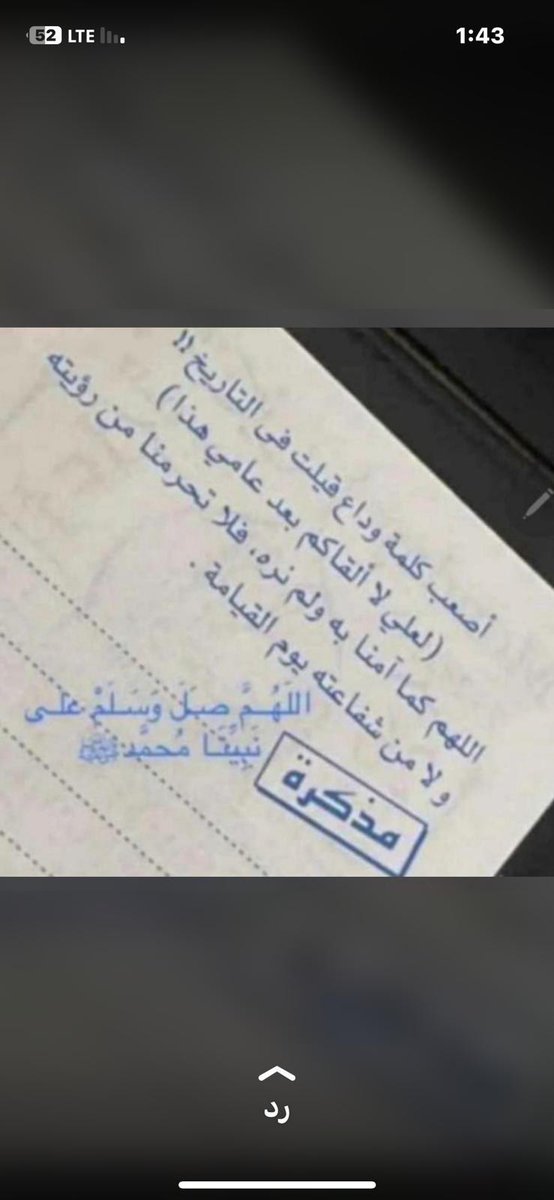 52 LTE
1:43
أصعب كلمة وداع قيلت فى التاريخ !!
(لعلي لا ألقاكم بعد عامي هذا)
اللهم كما آمنا به ولم نره، فلا تحرمنا من رؤيته
ولا من شفاعته يوم القيامة .
اللَهُمَّ صَلِ وَسَلِمْ على
نَبِيِّنَا مُحمَّد ﷺ
مذكرة
رد